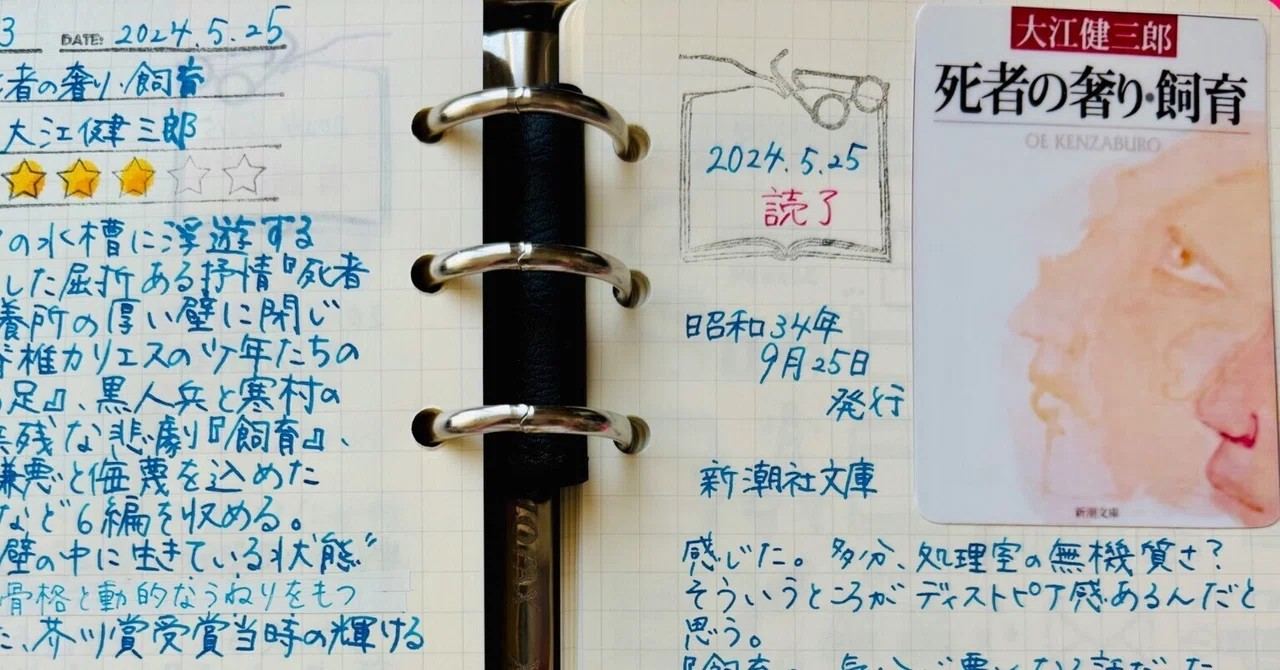 3 DATE: 2024.5.25
者の奢り・飼育
大江健三郎
の水槽に浮遊する
した屈折ある抒情『死者
養所の厚い壁に閉じ
脊椎カリエスの少年たちの
足』、黒人兵と寒村の
残な悲劇『飼育』、
嫌悪と侮蔑を込めた
など6編を収める。
壁の中に生きている状態”
骨格と動的なうねりをもつ
た、芥川賞受賞当時の輝ける
2024.5.25
読了
昭和34年
9月25日
発行
新潮社文庫
大江健三郎
死者の奢り・飼育
OE KENZABURO
新潮文庫
感じた。多分、処理室の無機質さ?
そういうところがディストピア感あるんだと
思う。